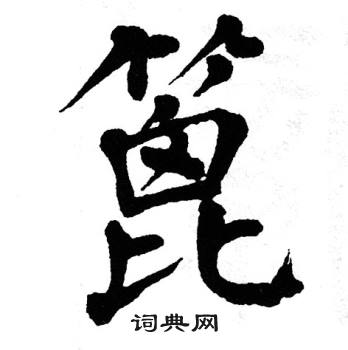 篦
词典网